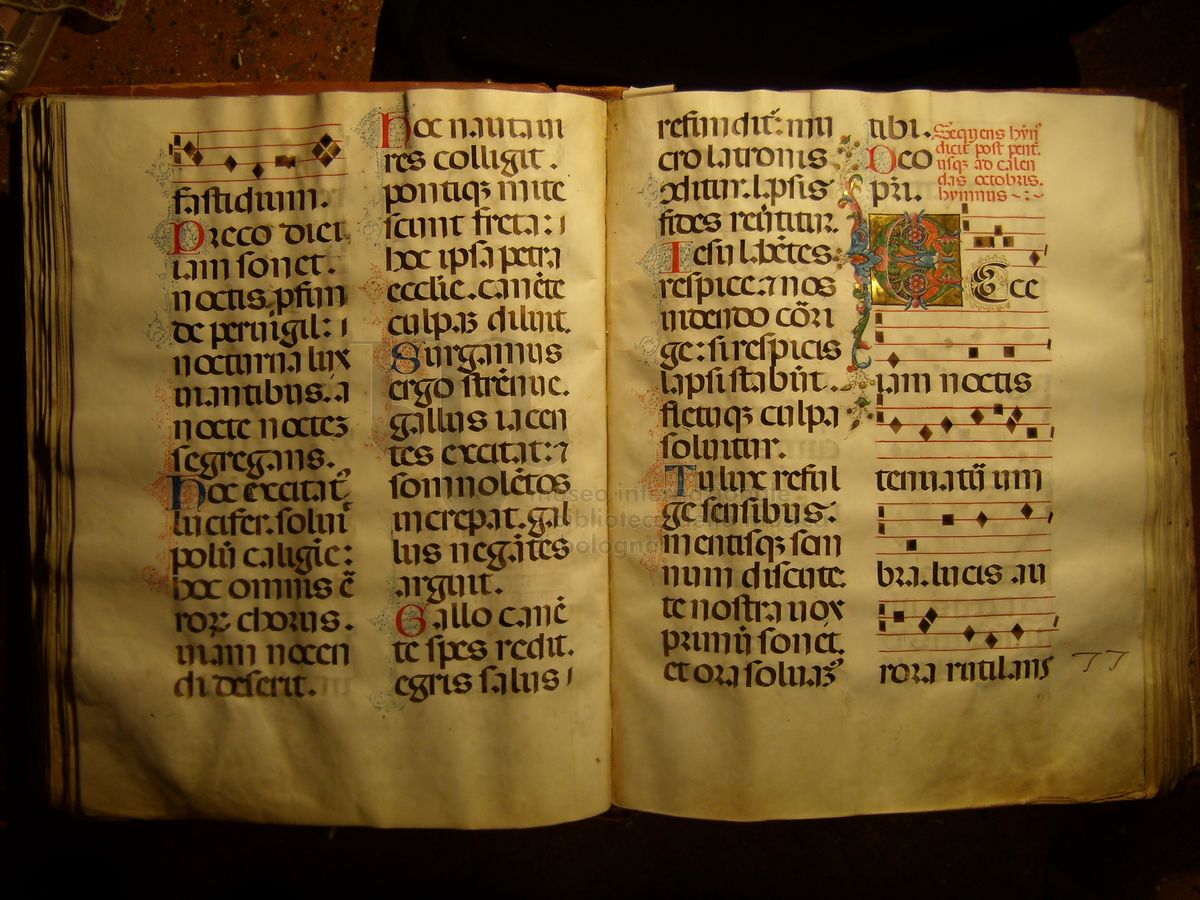 fastidium.
Preco diei
iam sonet.
noctis pfun
de peruigil: 
nocturna lux
uiantibus. a
nocte noctez
segregans.
Hoc excitat
lucifer. solui
polū caligie:
hoc omnis ē
ror chorus.
uiam nocen
di deserit.
Hoc nauta ui
res colligit.
pontiq; mite
scunt freta:
hoc ipsa petra
ecclie. canēte
culpaz diluit.
Surgamus
ergo strēnue.
gallus iacen
tes excitat: ⁊
somnolētos
increpat. gal
lus negātes
arguit.
Gallo canē
te spes redit.
egris salus
refundit: mu
cro latronis
ↄditur. lapsis
fides reūtitur.
Iesu labētes
respice. ⁊ nos
uidendo cōri
ge: si respicis
lapsi stabūt.
fletuq; culpa
soluitur.
Tu lux reful
ge sensibus:
mentisq; som
num discute.
te nostra uox
primū sonet.
et ora soluaz
tibi.
Deo
pri.
Sequens hyn
dicit post pent.
usq; ad calen
das octobris.
hymnus
Ecce
iam noctis
tenuatū um
bra. lucis au
rora rutilans
77
museo internazionale
biblioteca della musica
bologna